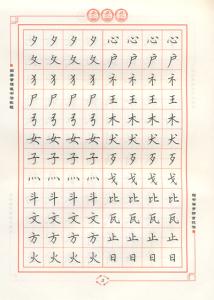 夕夕夕夕心心心心
夂夂夂夂户户户户
犭犭犭犭礻礻礻礻
尸尸尸尸王王王王
弓弓弓弓木木木木
女女女女犬犬犬犬
子子子子歹歹歹歹
灬灬灬灬戈戈戈戈
斗斗斗斗比比比比
文文文文瓦瓦瓦瓦
方方方方止止止止
火火火火日日日日